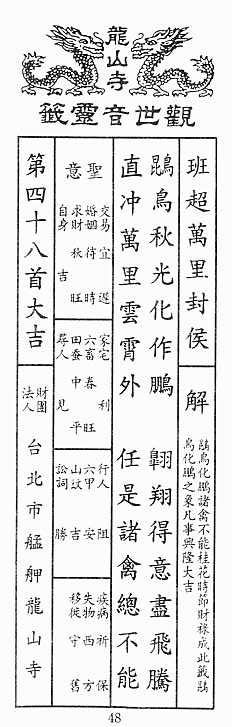 龍山寺
觀世音靈籤
班超萬里封侯
解
鵾鳥化鵬諸禽不能桂花時節財祿成此籤鵾
鳥化鵬之象凡事興隆大吉
鵾鳥秋光化作鵬 翺翔得意盡飛騰
直冲萬里雲霄外 任是諸禽總不能
聖意
交易 宜遲
婚姻 待時
求財 秋旺
自身 吉
家宅 利
六畜 春旺
田蚕 中平
尋人 見
行人 阻
六甲 安
山坟 吉
訟詞 勝
疾病 祈保
失物 西方
移徙 守舊
第四十八首大吉
財團法人台北市艋舺龍山寺
48